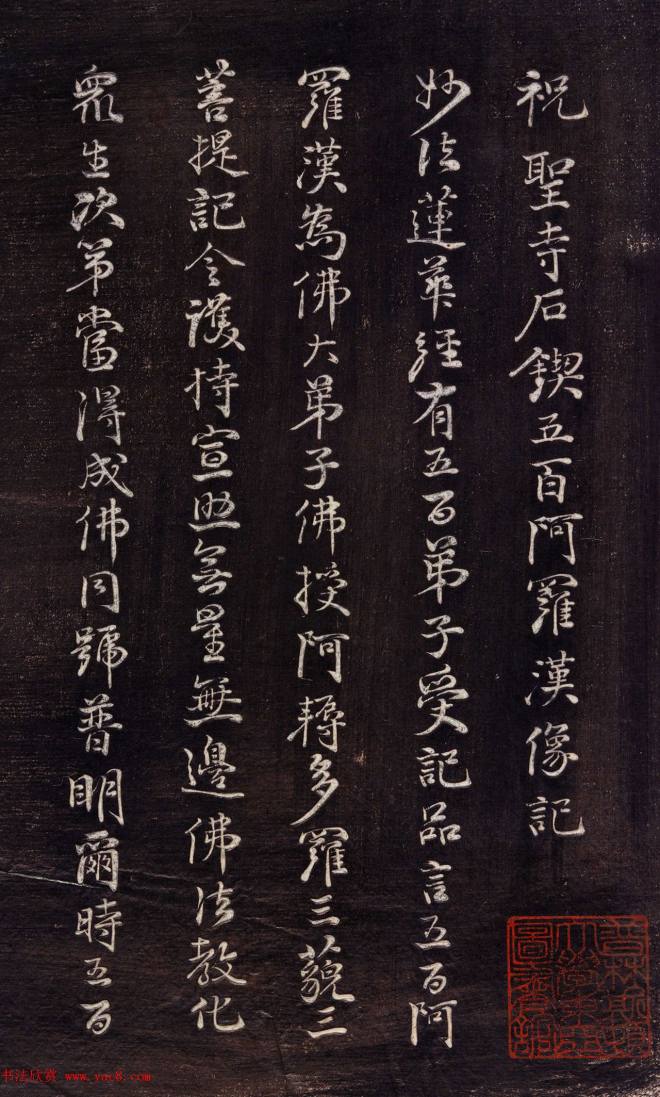 祝聖寺石鍥五百阿羅漢像記
妙法蓮華經有五百弟子受記品言五百阿
羅漢為佛大弟子佛授阿耨多羅三藐三
菩提記令護持宣助無量無邊佛法教化
眾生次第當得成佛同號普明爾時五百
普林斯頓大學東亞圖書館
书法欣赏 www.yac8.com